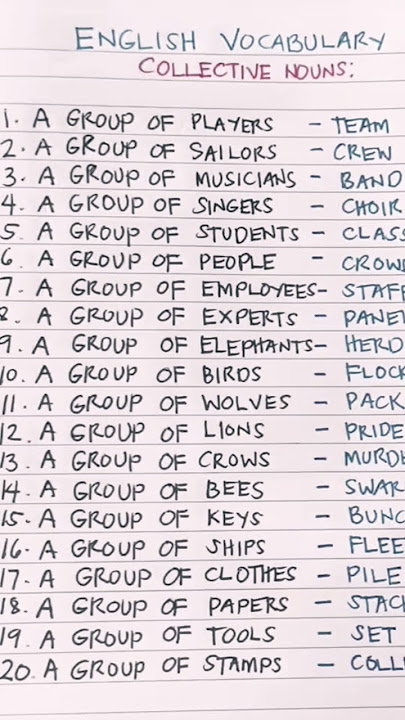 ENGLISH VOCABULARY
COLLECTIVE NOUNS:
1. A GROUP OF PLAYERS - TEAM
2. A GROUP OF SAILORS - CREW
3. A GROUP OF MUSICIANS - BAND
4. A GROUP OF SINGERS - CHOIR
5. A GROUP OF STUDENTS - CLASS
6. A GROUP OF PEOPLE - CROW
7. A GROUP OF EMPLOYEES - STAFF
8. A GROUP OF EXPERTS - PANE
9. A GROUP OF ELEPHANTS - HERD
10. A GROUP OF BIRDS - FLOCK
11. A GROUP OF WOLVES - PACK
12. A GROUP OF LIONS - PRIDE
13. A GROUP OF CROWS - MURD
14. A GROUP OF BEES - SWAR
15. A GROUP OF KEYS - BUNC
16. A GROUP OF SHIPS - FLEE
17. A GROUP OF CLOTHES - PILE
18. A GROUP OF PAPERS - STAC
19. A GROUP OF TOOLS - SET
20. A GROUP OF STAMPS - COLL